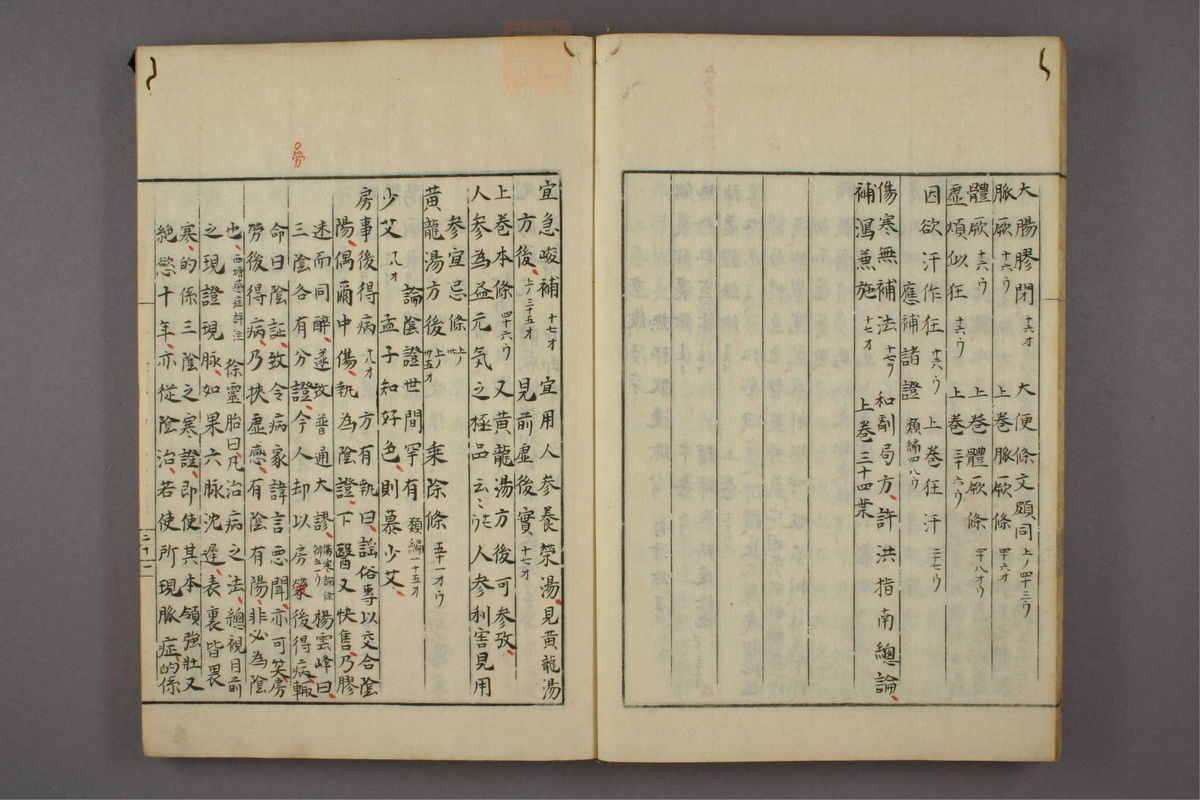 大腸膠閉 十六オ 大便條文頗同 上ノ四十三ウ
脈厥 十六ウ 上巻脈厥條 四十六オ
體厥 十六ウ 上巻體厥條 四十八オウ
虚煩似狂 十六ウ 上巻 三十六ウ
因欲汗作狂 十六ウ 上巻狂汗 三七ウ
應補諸證 類編四八ウ
傷寒無補法 十七ウ 和剤局方、許洪指南總論、
補瀉兼施 十七オ 上巻三十四葉
宜急峻補 十七オ 宜用人参養榮湯、見黄龍湯
方後、上ノ三十五オ 見前虚後實 十七オ
上巻本條 四十六ウ 又黄龍湯方後可参攷、
人参為益元気之極品云々 人参利害見用
参宜忌條 乘除條 五十一オウ
黄龍湯方後 上ノ卅五オ
論陰證世間罕有 類編一十五オ
少艾 十八オ 孟子知好色、則慕少艾、
房事後得病 十八オ 方有執曰、謡俗専以交合陰
陽、偶爾中傷、執為陰證、下醫又快售、乃膠
迷而同酔、遂致普通大謬、傷寒論條辨五一ウ 楊雲峰曰、
三陰各有分證、今人却以房勞後得病、輙
命曰陰証、致令病家諱言悪聞、亦可笑、房
勞後得病、乃挾虚感、有陰有陽、非必為陰
也、西塘感症評注 徐靈胎曰、凡治病之法、總視目前
之現證現脉、如果六脉沈遲、表裏皆畏
寒、的係三陰之寒證、即使其本領強壮、又
絶慾十年、亦從陰治、若使所現脈症、的係
勞
二十一